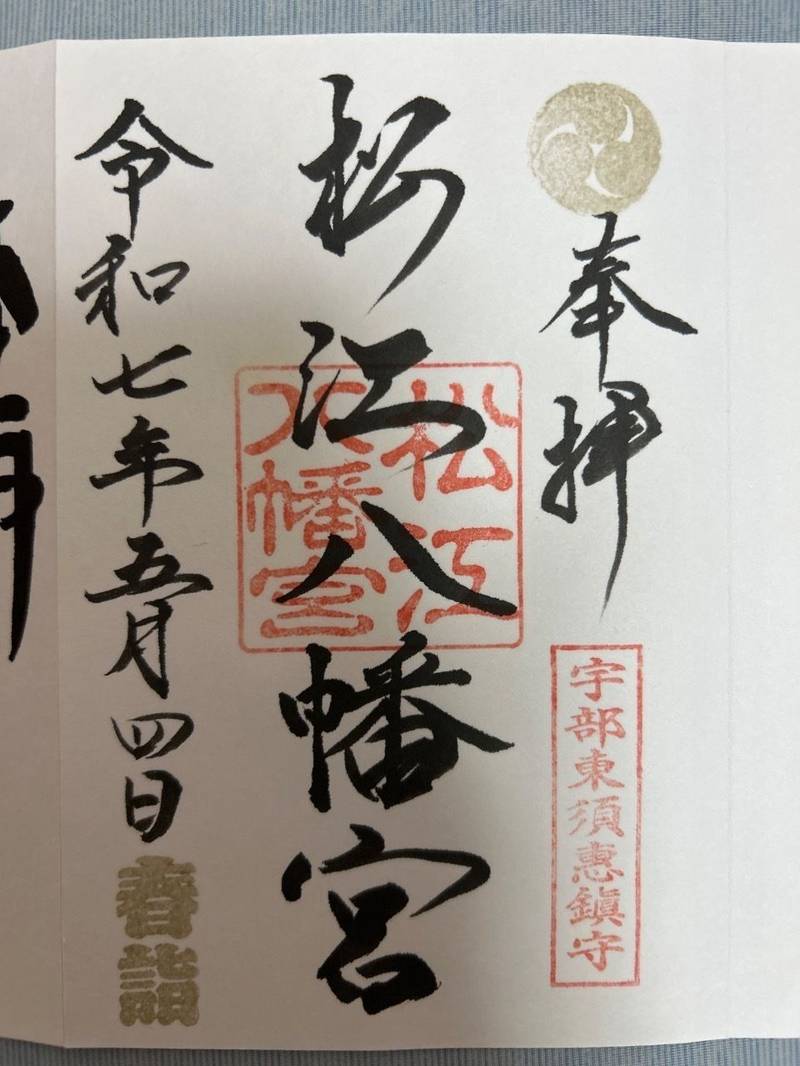 奉拝
宇部東須惠鎮守
松江八幡宮
松江
八幡宮
令和七年五月四日
春詣